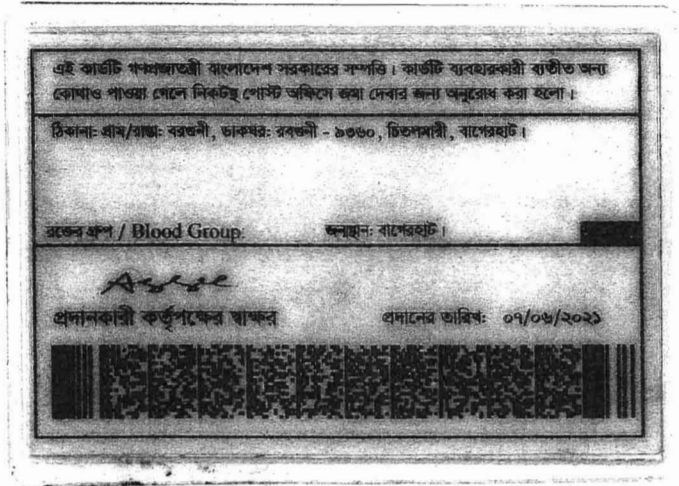 এই কার্ডটি গণপ্রজাতন্ত্রী বাংলাদেশ সরকারের সম্পত্তি। কার্ডটি ব্যবহারকারী ব্যতীত অন্য
কোথাও পাওয়া গেলে নিকটস্থ পোস্ট অফিসে জমা দেবার জন্য অনুরোধ করা হলো।
ঠিকানা: গ্রাম/রাস্তা: বরগুনী, ডাকঘর: রবগুনী - ৯৩৬০, চিতলমারী, বাগেরহাট।
রক্তের গ্রুপ / Blood Group: জন্মস্থান: বাগেরহাট।
প্রদানকারী কর্তৃপক্ষের স্বাক্ষর প্রদানের তারিখ: ০৭/০৬/২০২১